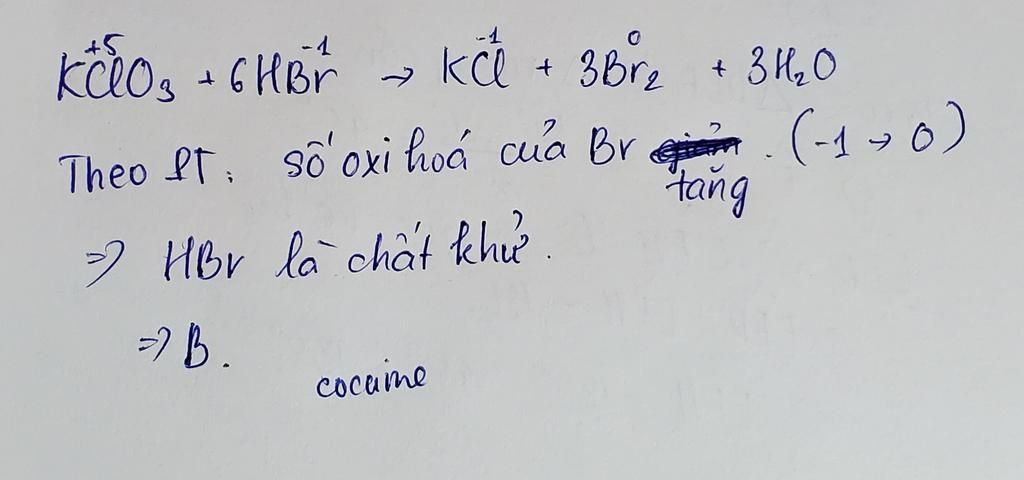 KClO₃ + 6HBr → KCl + 3Br₂ + 3H₂O
+5 -1 -1 0
Theo PT: số oxi hoá của Br tăng. (-1 → 0)
=> HBr là chất khử.
=> B.
cocaine